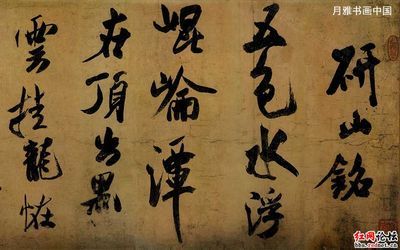 月雅书画中国
研山銘
五色水浮
崐崘潭
在頂出黑
雲挂龍怪
红网论坛